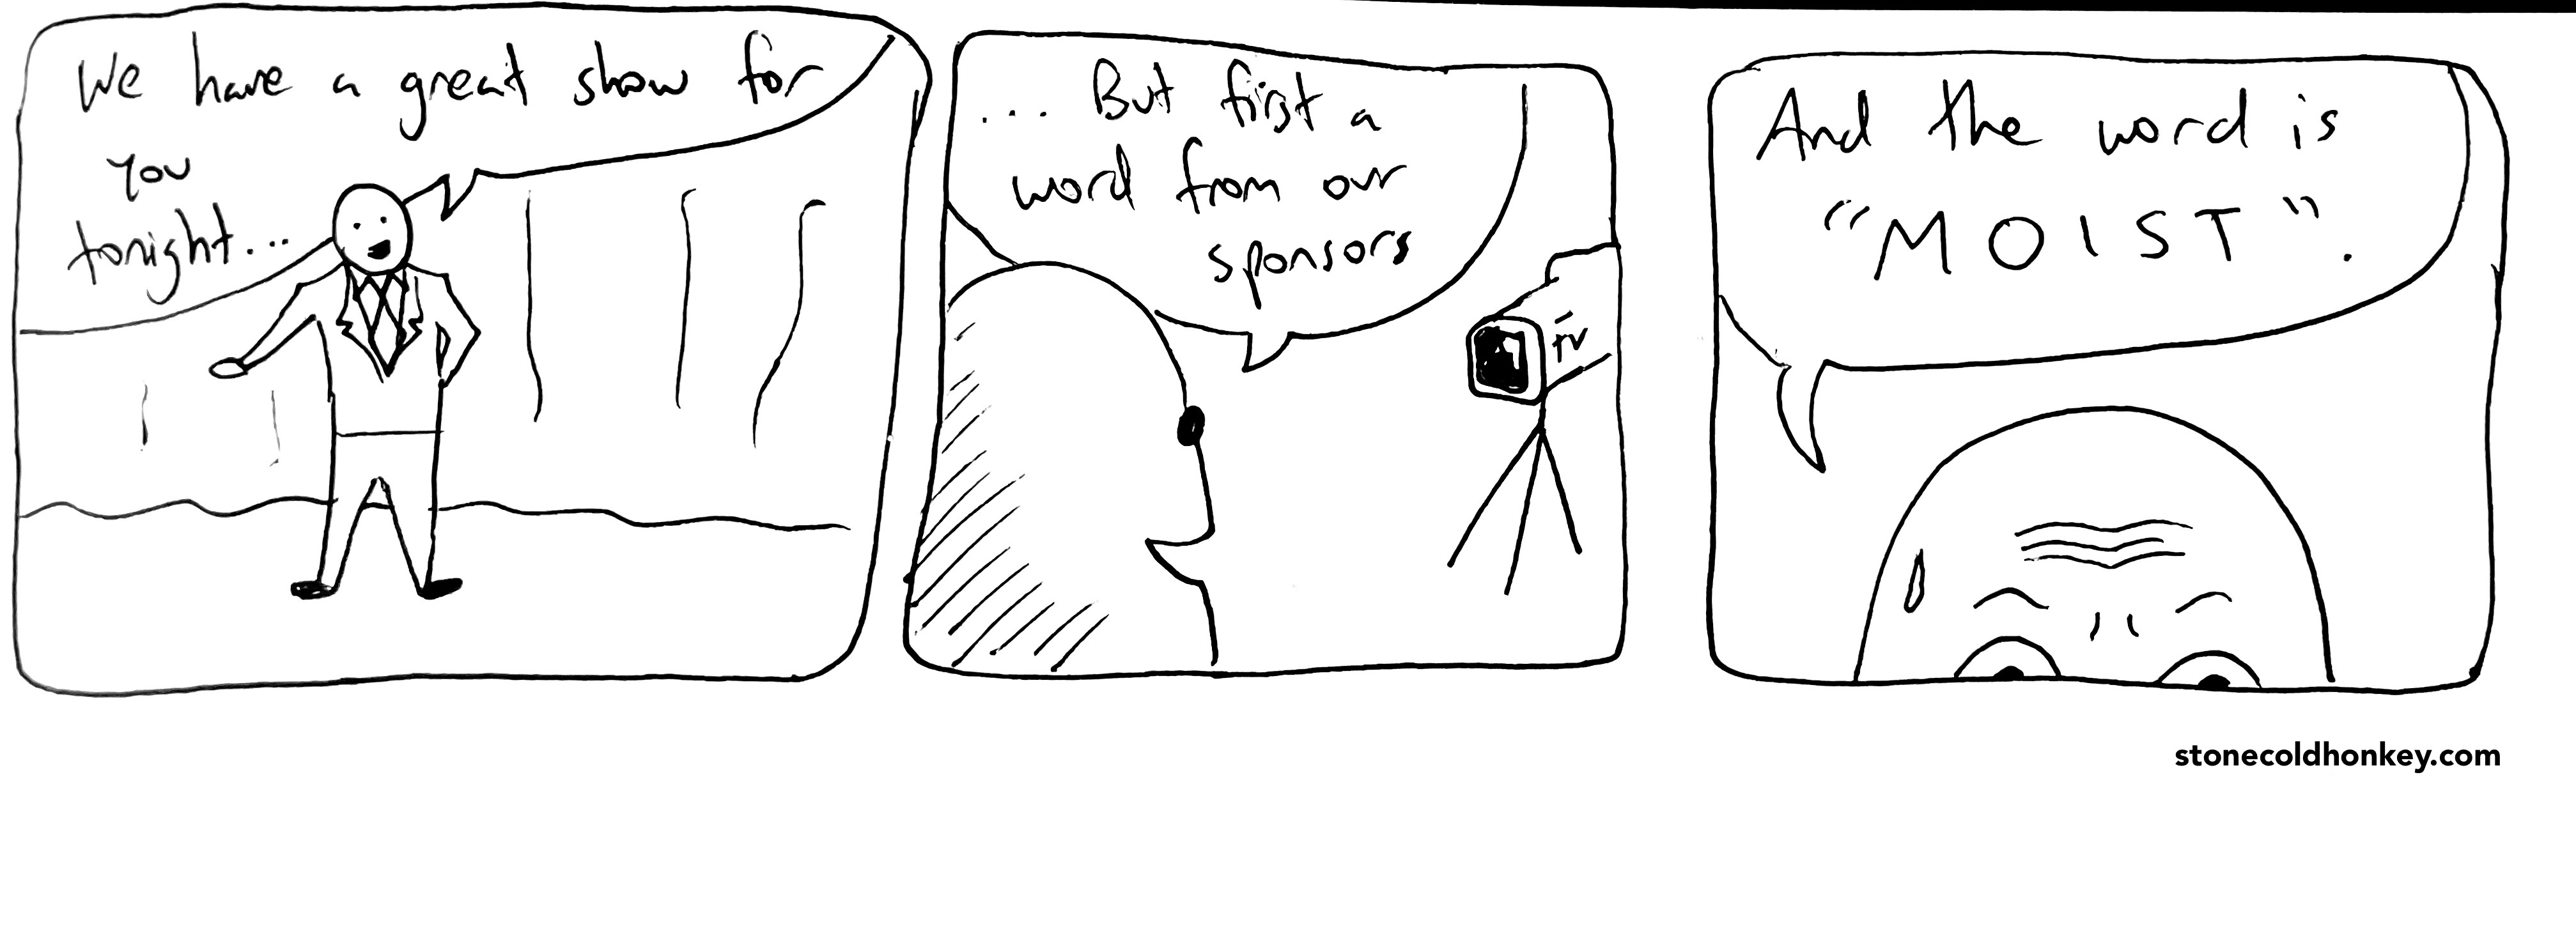 We have a great show for
you
tonight...
... But first a
word from our
sponsors
TV
And the word is
"MOIST".
stonecoldhonkey.com